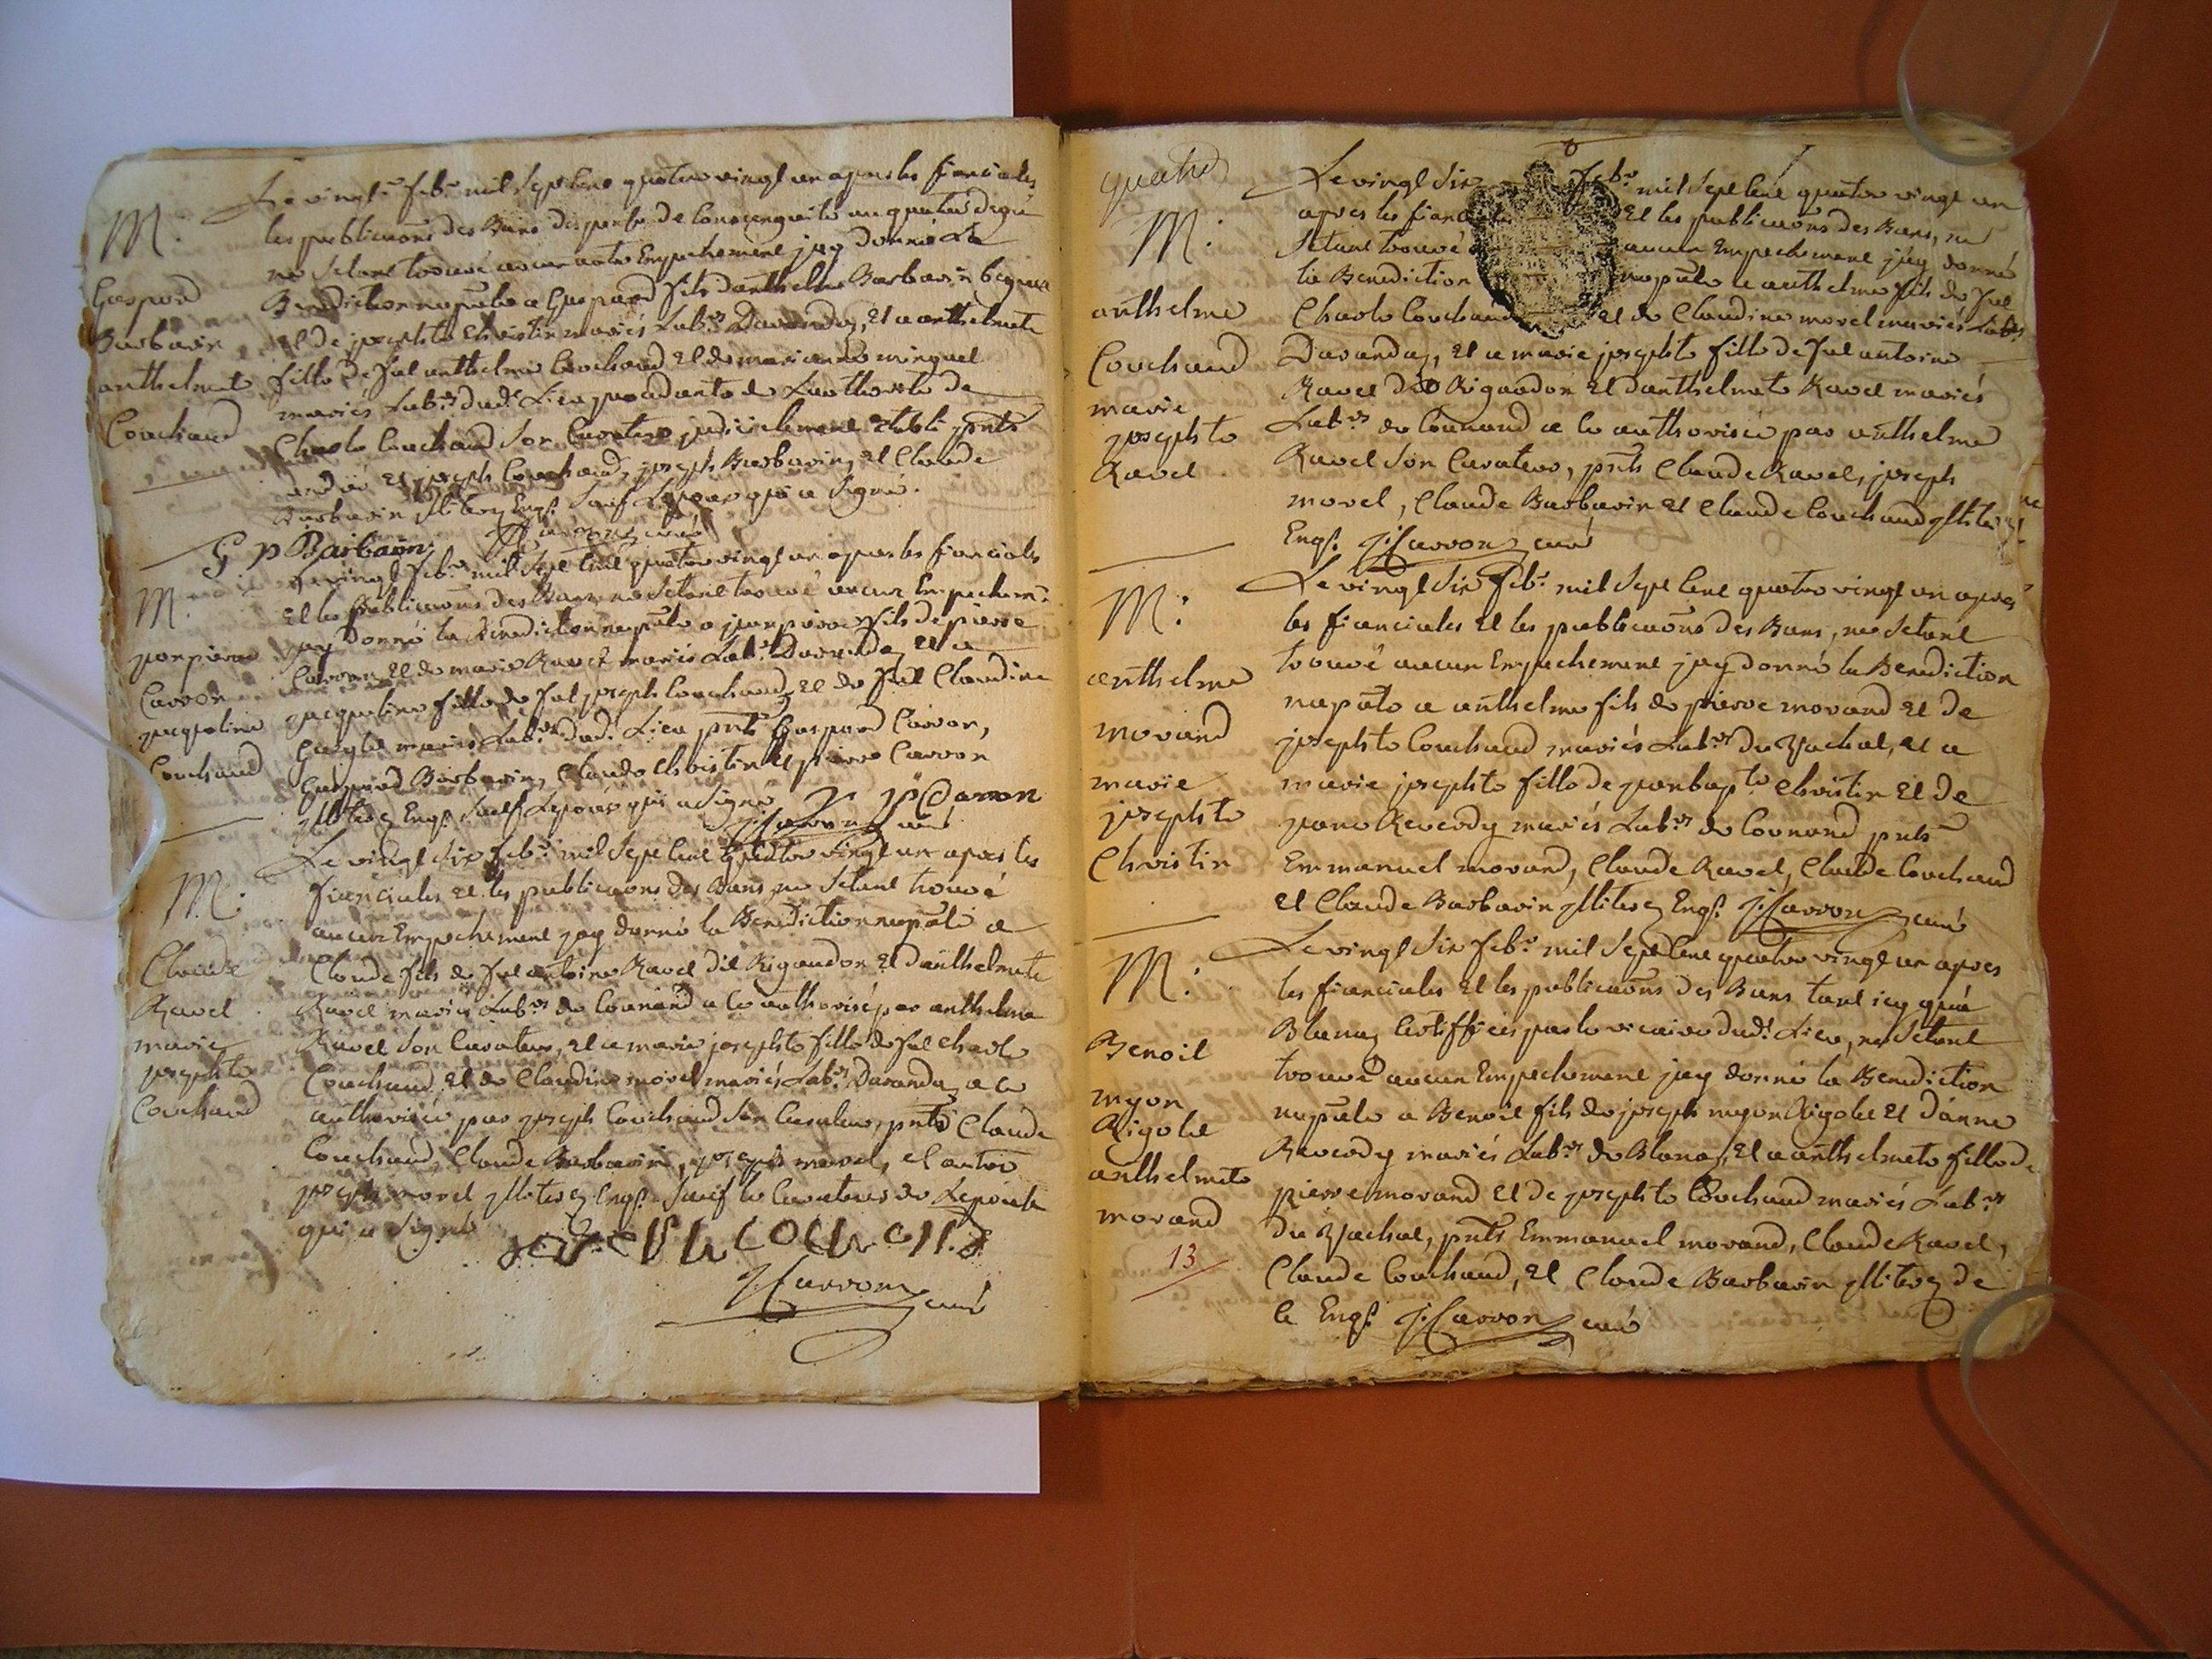 M.
Gaspard
Barbarin
anthelmete
Couchaud
Le vingt febr. mil sept cent quatre vingt un apres les fiancialies
les publicaons des Bans dispense de Consanguinite au quatre degré
ne s'etant trouvé aucun autre Empechement j'ay donné La
Benediction nupale a Gaspard fils d'anthelme Barbarin
et de josephte Christin mariés Lab.rs Davanday, Et a anthelmete
fille de ful anthelme Couchaud et de marianne minguet
mariés Lab.rs dud. Lieu procedante de Lauthorité de
Charle Couchaud son Curateur judicielement etabli pnts
andré et joseph Couchaud, joseph Barbarin, et Claude
Barbarin illiterez Enqs. sauf Lepoux qui a signé.
G p Barbarin J: Carron curé
M.
jean pierre
Carron
jacqueline
Couchaud
Le vingt febr. mil sept cent quatre vingt un apres les fiancialies
et les publicaons des Bans, ne s'etant trouvé aucun Empechem.t
jay donné la Benediction nupale a jean pierre fils de pierre
Carron et de marie Ravet mariés Lab.rs Davanday et a
jacqueline fille de ful joseph Couchaud, et de ful Claudine
mariés Lab.rs dud. Lieu pnts Gaspard Carron,
Gaspard Barbarin, Claude Christin et pierre Carron
illiterez Enqs. sauf Lepoux qui a signé J P Carron
J: Carron curé
M.
Claude
Ravet
marie
josephte
Couchaud
Le vingt six febr. mil sept cent quatre vingt un apres les
fiancialies et les publicaons des Bans, ne s'etant trouvé
aucun Empechement jay donné la Benediction nupale a
Claude fils de ful antoine Ravet dit Rigaudon et d'anthelmete
Ravet mariés Lab.rs de Counand a ce authorisé par anthelme
Ravet son Curateur, et a marie josephte fille de ful Charle
Couchaud, et de Claudine morel mariés Lab.rs Davanday a ce
authorisée par joseph Couchaud son Curateur, pnts Claude
Couchaud, Claude Barbarin, joseph morel, et autre
joseph morel illiterez Enqs. sauf le Curateur de Lepouse
qui a signé joseph couchaud
J: Carron curé
quatre
M.
anthelme
Couchaud
marie
josephte
Ravet
Le vingt six febr. mil sept cent quatre vingt un
apres les fiancialies Et les publicaons des Bans, ne
s'etant trouvé aucun Empechement j'ay donné
la Benediction nupale a anthelme fils de ful
Charle Couchaud et de Claudine morel mariés Lab.rs
Davanday, et a marie josephte fille de ful antoine
Ravet dit Rigaudon et d'anthelmete Ravet mariés
Lab.rs de Counand a ce authorisée par anthelme
Ravet son Curateur, pnts Claude Ravet, joseph
morel, Claude Barbarin et Claude Couchaud illiterez
Enqs. J: Carron curé
M.
anthelme
morand
marie
josephte
Christin
Le vingt six febr. mil sept cent quatre vingt un apres
les fiancialies et les publicaons des Bans, ne s'etant
trouvé aucun Empechement jay donné la Benediction
nupale a anthelme fils de pierre morand et de
josephte Couchaud mariés Lab.rs du Zjachat, et a
marie josephte fille de jean bapt.e Christin et de
jeane Reverdy mariés Lab.rs de Counand pnts
Emmanuel morand, Claude Ravet, Claude Couchaud
et Claude Barbarin illiterez Enqs. J: Carron curé
M.
Benoit
myon
Rigolet
anthelmete
morand
13
Le vingt six febr. mil sept cent quatre vingt un apres
les fiancialies et les publicaons des Bans tant icy qu'à
Blanaz Certiffiées par le vicaire dud. Lieu, ne s'etant
trouvé aucun Empechement jay donné la Benediction
nupale a Benoit fils de joseph myon Rigolet et d'anne
Reverdy mariés Lab.rs de Blanaz, et a anthelmete fille de
pierre morand et de josephte Couchaud mariés Lab.rs
du Zjachat, pnts Emmanuel morand, Claude Ravet,
Claude Couchaud, et Claude Barbarin illiterez de
ce Enqs. J: Carron curé